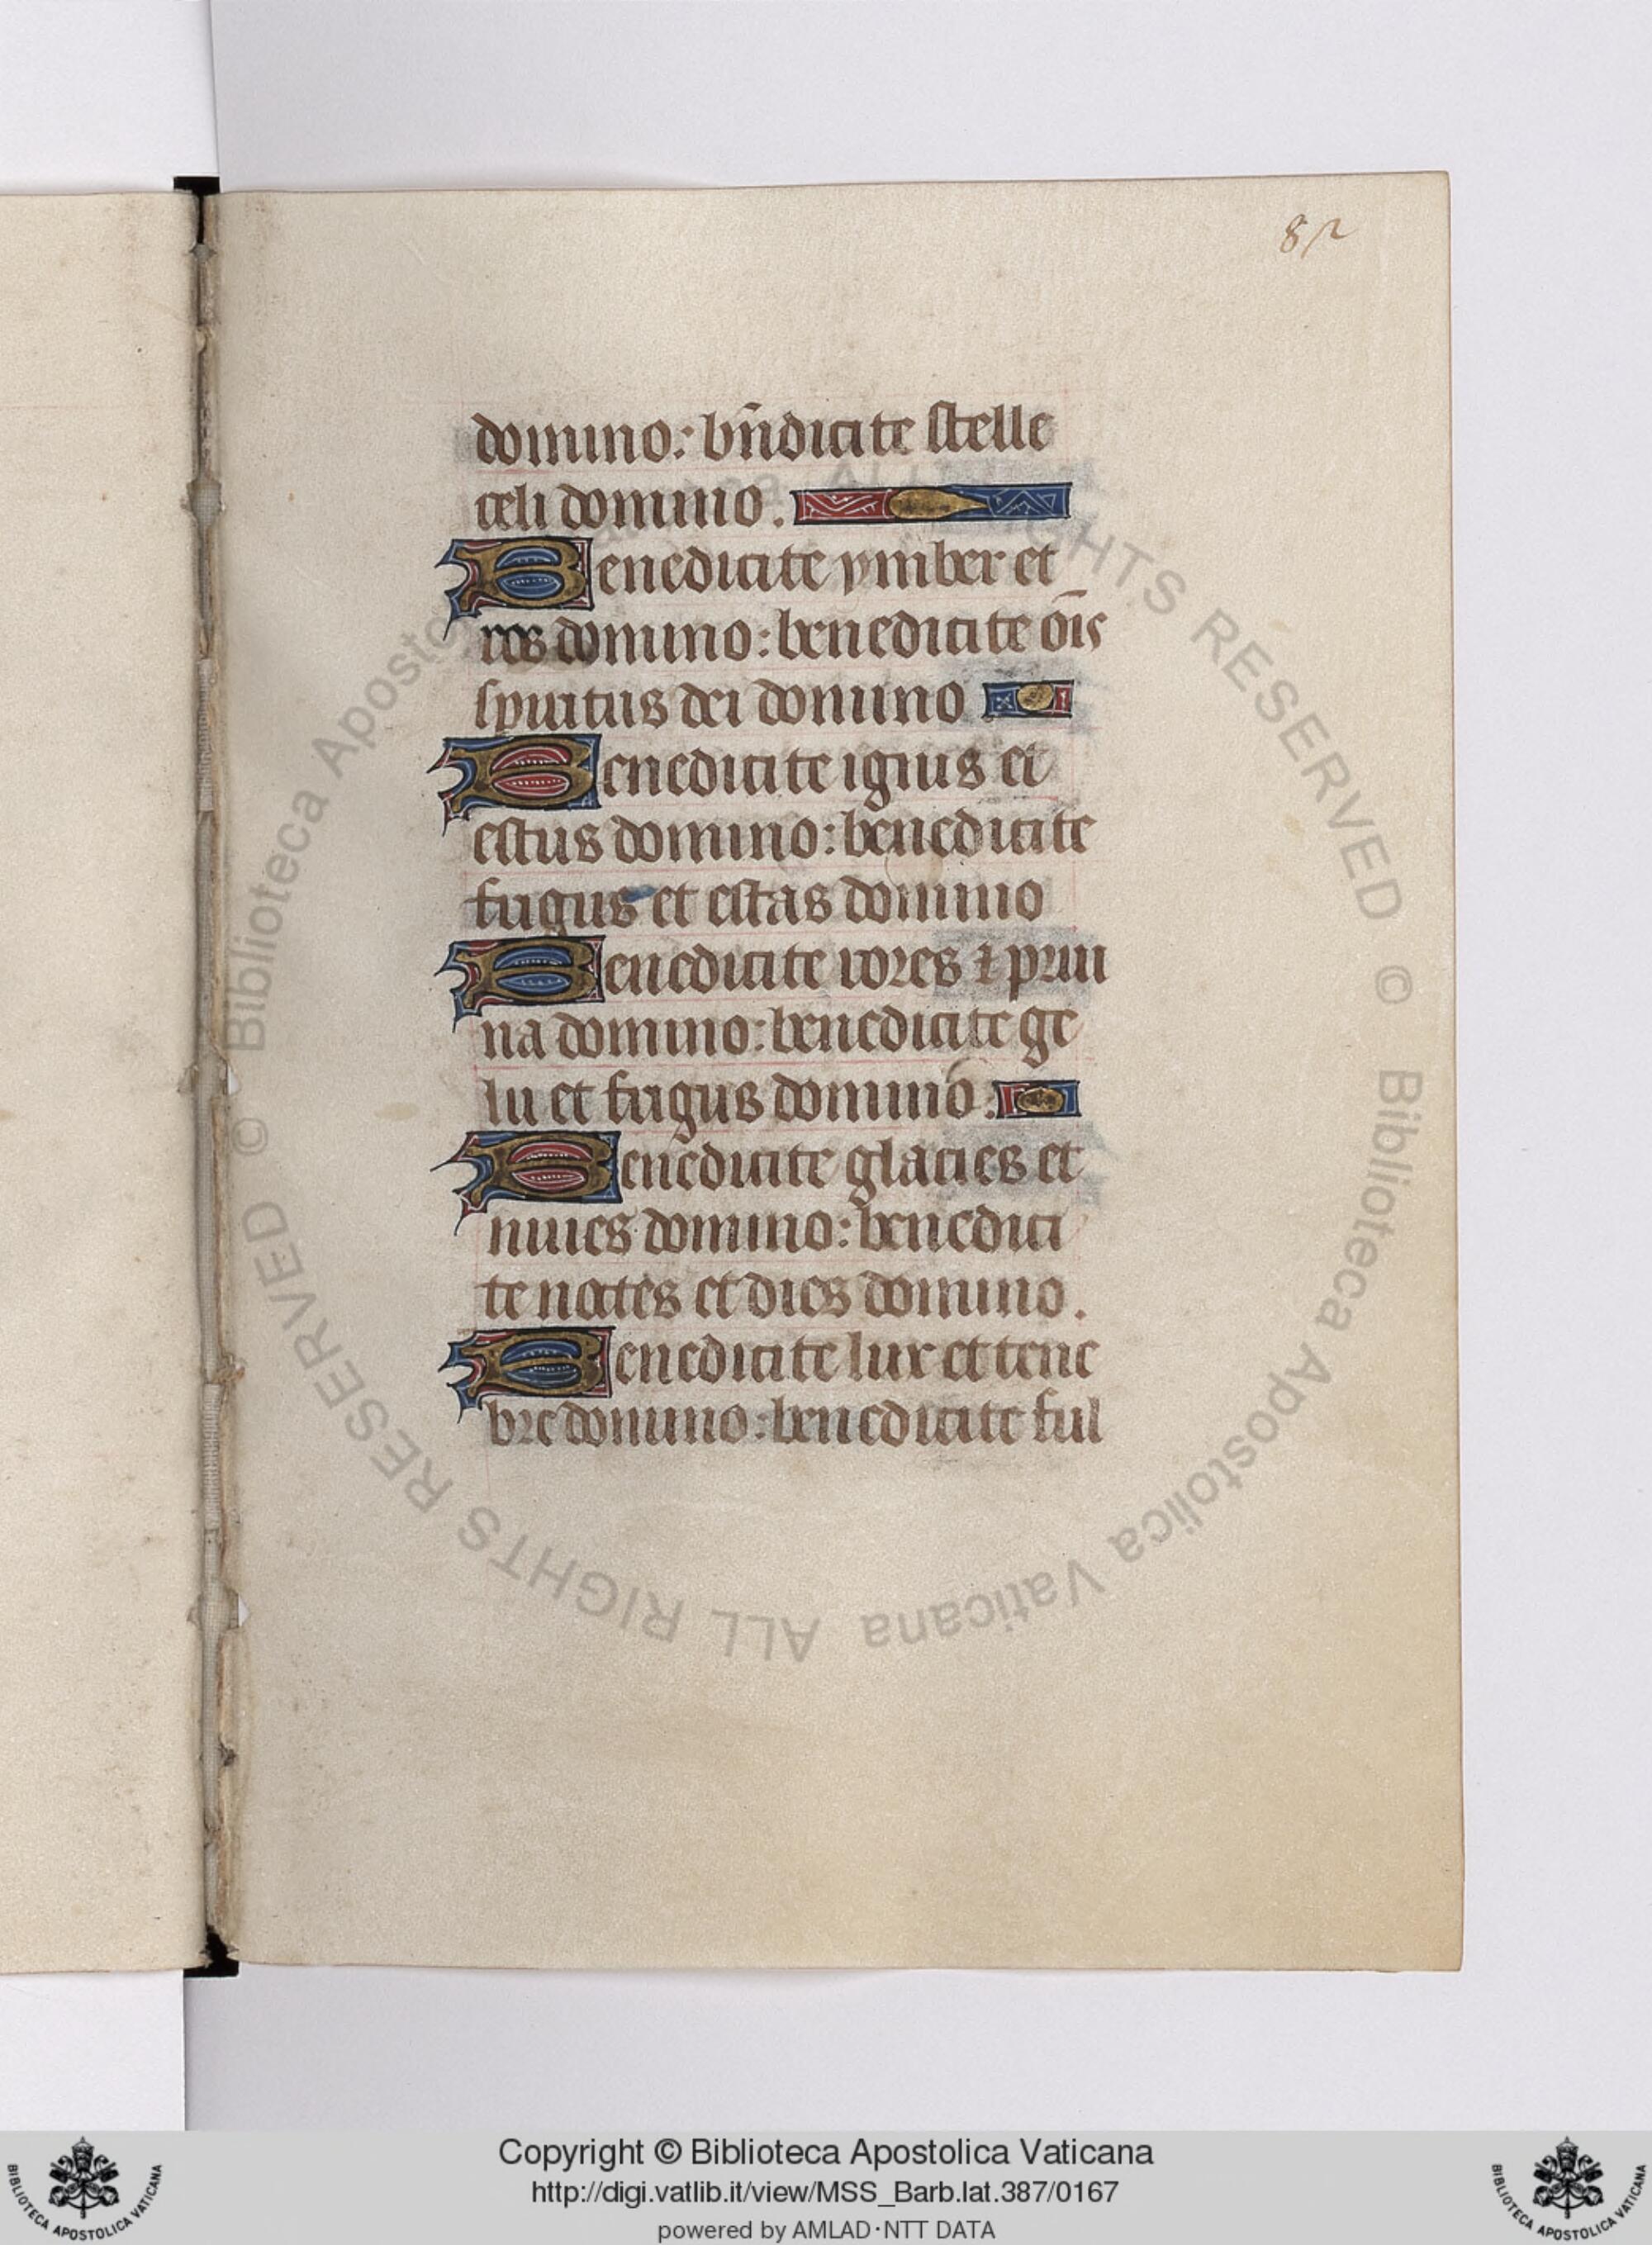 82
domino: bn̄dicite stelle
celi domino.
Benedicite ymber et
ros domino: benedicite oīs
spiritus dei domino
Benedicite ignis et
estus domino: benedicite
frigus et estas domino
Benedicite rores ⁊ prui
na domino: benedicite ge
lu et frigus domino:
Benedicite glacies et
niues domino: benedici
te noctes et dies domino.
Benedicite lux et tene
bre domino: benedicite ful
© Biblioteca Apostolica Vaticana ALL RIGHTS RESERVED © Biblioteca Apostolica Vaticana ALL RIGHTS RESERVED
Copyright © Biblioteca Apostolica Vaticana
http://digi.vatlib.it/view/MSS_Barb.lat.387/0167
powered by AMLAD·NTT DATA
BIBLIOTECA APOSTOLICA VATICANA
BIBLIOTECA APOSTOLICA VATICANA